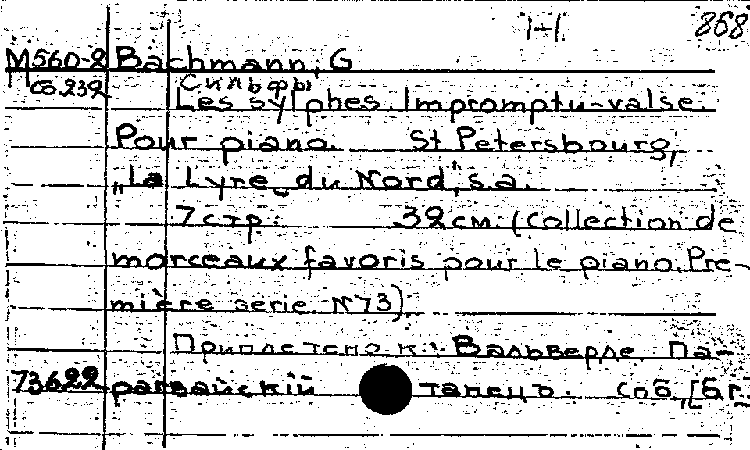 1-1. 868
М560-2 Bachmann, G
сб.232 Сильфы
Les sylphes. Impromptu-valse.
Pour piano. St Petersbourg,
„La Lyre du Nord", s.a.
7 стр. 32 см. (Collection de
morceaux favoris pour le piano. Pre-
mière serie. N°73)
Приплетено к: Вальверде. Па-
73622 рагвайскій танецъ. Соб, [Б.г.